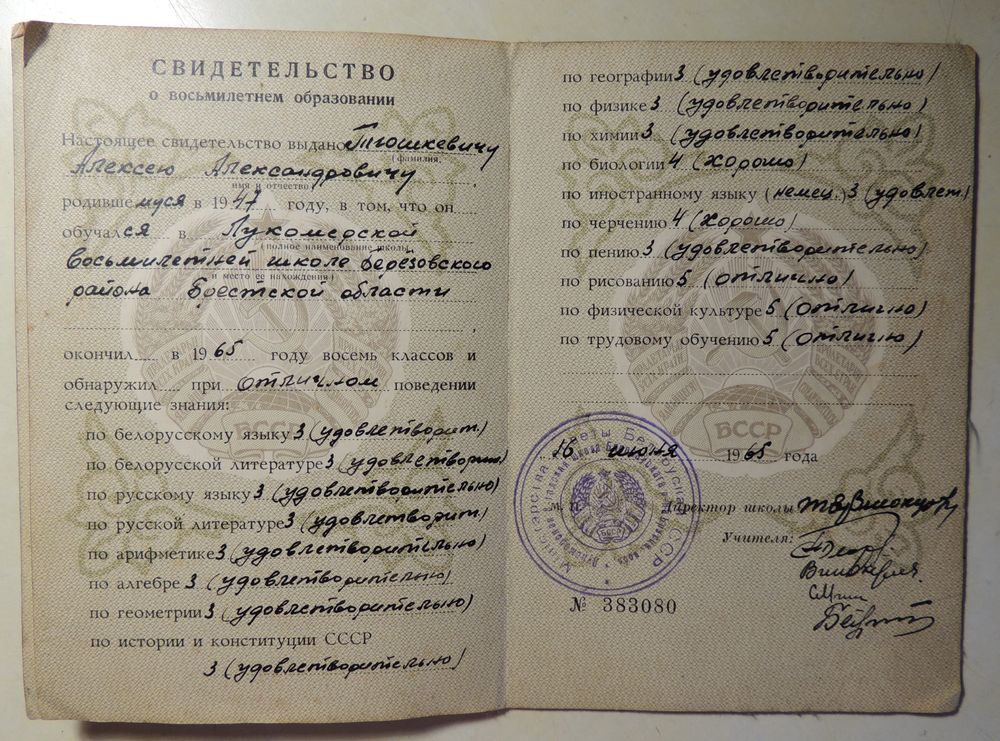 СВИДЕТЕЛЬСТВО
о восьмилетнем образовании
Настоящее свидетельство выдано Тюшкевичу
(фамилия,
Алексею Александровичу
имя и отчество)
родившемуся в 1947 году, в том, что он
обучался в Лукомерской
(полное наименование школы
восьмилетней школе Березовского
и место ее нахождения)
района Брестской области
окончил в 1965 году восемь классов и
обнаружил при отличном поведении
следующие знания:
по белорусскому языку 3 (удовлетворит.)
по белорусской литературе 3 (удовлетворит.)
по русскому языку 3 (удовлетворительно)
по русской литературе 3 (удовлетворит.)
по арифметике 3 (удовлетворительно)
по алгебре 3 (удовлетворительно)
по геометрии 3 (удовлетворительно)
по истории и конституции СССР
3 (удовлетворительно)
БССР
по географии 3 (удовлетворительно)
по физике 3 (удовлетворительно)
по химии 3 (удовлетворительно)
по биологии 4 (хорошо)
по иностранному языку (немец.) 3 (удовлет.)
по черчению 4 (хорошо)
по пению 3 (удовлетворительно)
по рисованию 5 (отлично)
по физической культуре 5 (отлично)
по трудовому обучению 5 (отлично)
БССР
16 июня 1965 года
М. П.
Директор школы
Учителя:
№ 383080